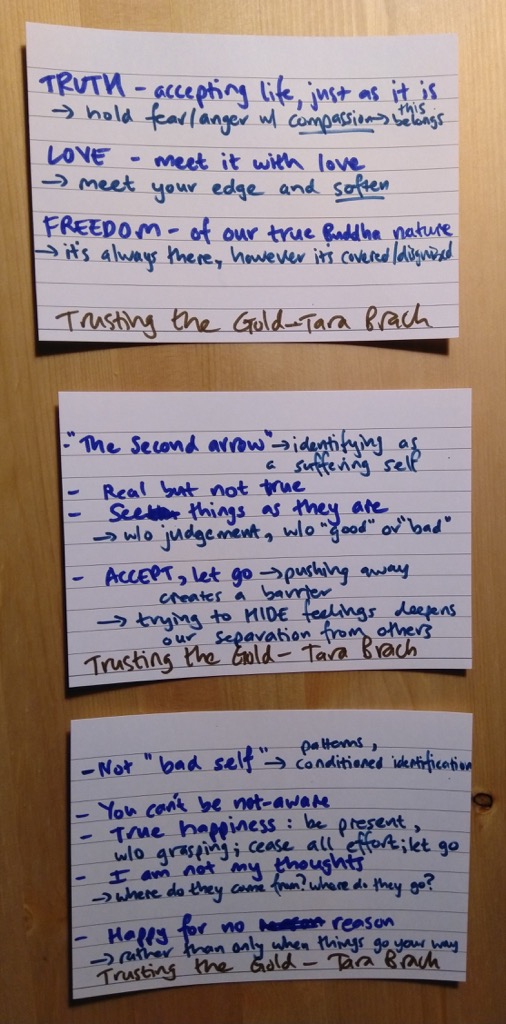 TRUTH - accepting life, just as it is
→ hold fear/anger w/ compassion → this belongs
LOVE - meet it with love
→ meet your edge and soften
FREEDOM - of our true Buddha nature
→ it's always there, however it's covered/disguised
Trusting the Gold - Tara Brach
- "The second arrow" → identifying as
a suffering self
- Real but not true
- See things as they are
→ w/o judgement, w/o "good" or "bad"
- ACCEPT, let go → pushing away
creates a barrier
→ trying to HIDE feelings deepens
our separation from others
Trusting the Gold - Tara Brach
- Not "bad self" → patterns,
conditioned identification
- You can't be not-aware
- True happiness: be present,
w/o grasping; cease all effort; let go
- I am not my thoughts
→ where do they come from? where do they go?
- Happy for no reason
→ rather than only when things go your way
Trusting the Gold - Tara Brach